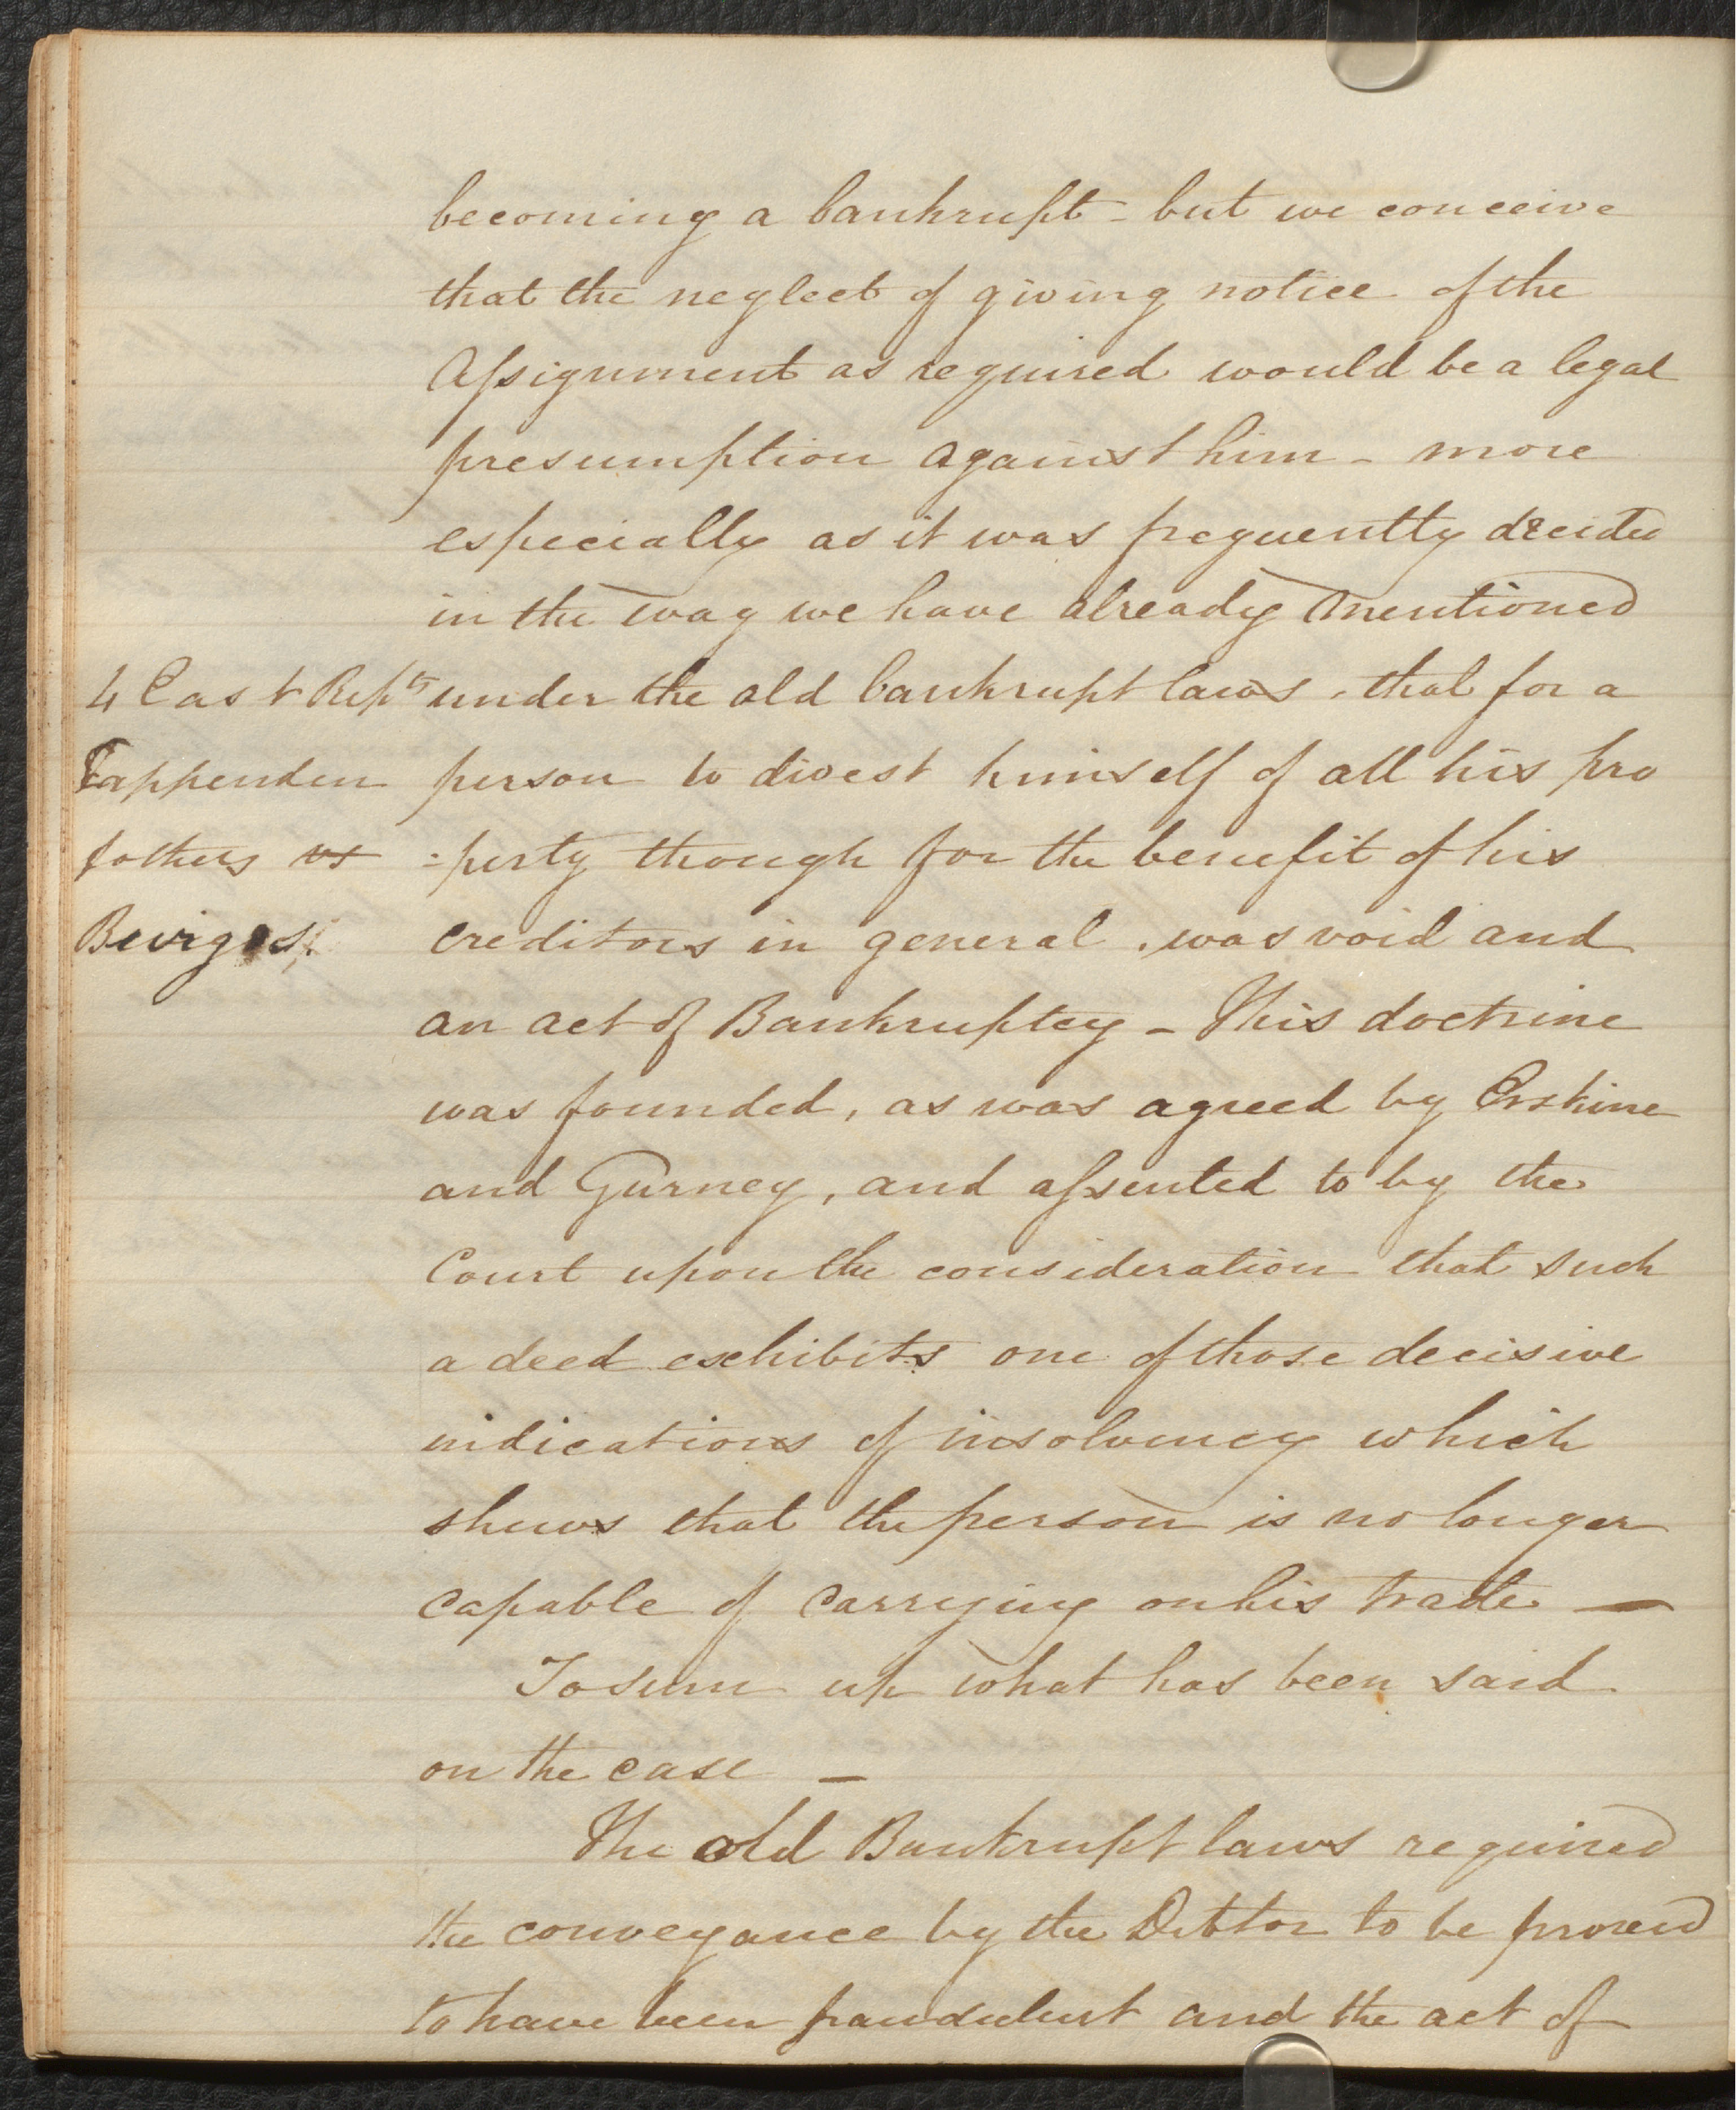 becoming a bankrupt - but we conceive
that the neglect of giving notice of the
Assignment as required would be a legal
presumption against him - more
especially as it was frequently decided
in the way we have already mentioned
4 East Repts
Tappenden
& others vs
Burgess.
under the old bankrupt laws, that for a
person to divest himself of all his pro
=perty though for the benefit of his
creditors in general, was void and
an act of Bankruptcy - This doctrine
was founded, as was agreed by Erskine
and Gurney, and assented to by the
Court upon the consideration that such
a deed exhibits one of those decisive
indications of insolvency which
shews that the person is no longer
capable of carrying on his trade —
To sum up what has been said
on the case —
The old Bankrupt laws required
the conveyance by the Debtor to be proved
to have been fraudulent and the act of